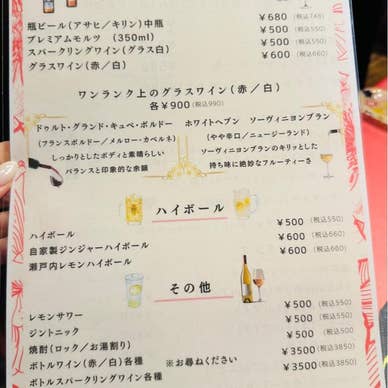 瓶ビール(アサヒ/キリン)中瓶 ¥680(税込748)
プレミアムモルツ (350ml) ¥500(税込550)
スパークリングワイン(グラス白) ¥500(税込550)
グラスワイン(赤/白) ¥600(税込660)
ワンランク上のグラスワイン(赤/白)
各¥900(税込990)
ドゥルト・グランド・キュベ・ボルドー
(フランスボルドー/メルロー・カベルネ)
しっかりとしたボディと素晴らしい
バランスと印象的な余韻
ホワイトヘブン ソーヴィニヨンブラン
(やや辛口/ニュージーランド)
ソーヴィニヨンブランのキリッとした
持ち味に絶妙なフルーティーさ
ハイボール
ハイボール ¥500(税込550)
自家製ジンジャーハイボール ¥600(税込660)
瀬戸内レモンハイボール ¥600(税込660)
その他
レモンサワー ¥500(税込550)
ジントニック ¥500(税込550)
焼酎(ロック/お湯割り) ¥500(税込550)
ボトルワイン(赤/白)各種 ※お尋ねください ¥3500(税込3850)
ボトルスパークリングワイン各種 ¥3500(税込3850)